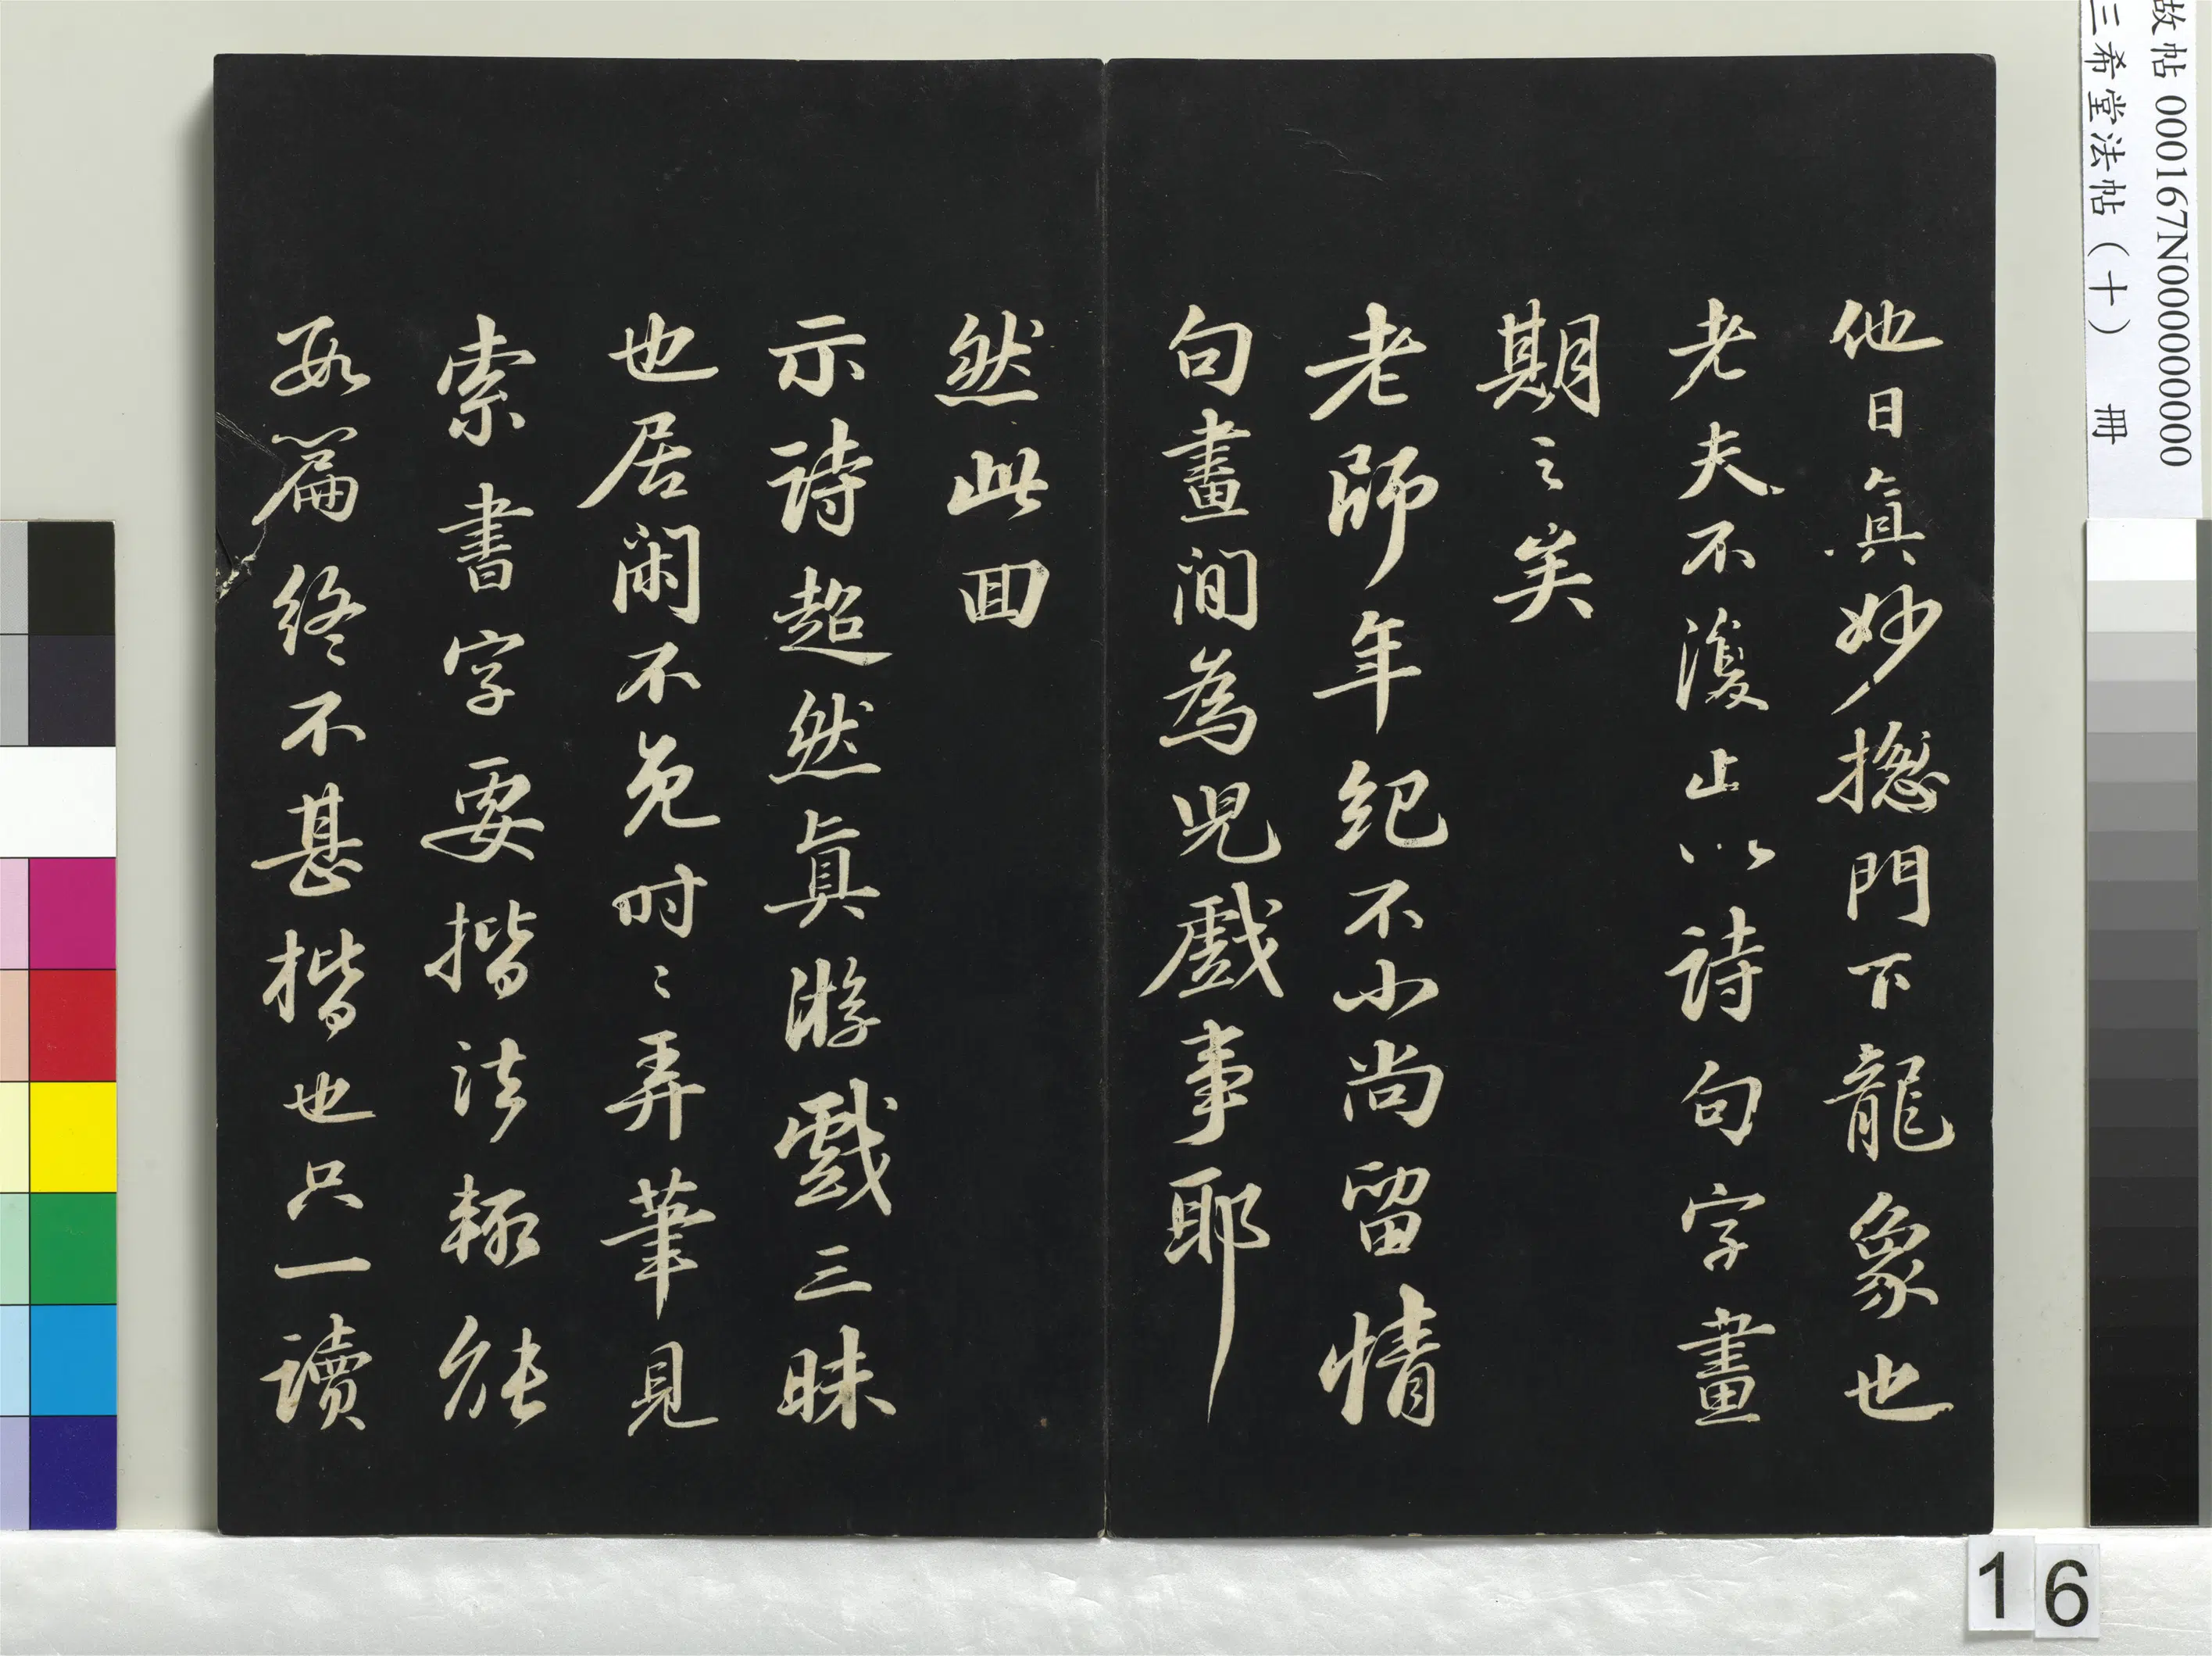 他日真妙揔門下龍象也
老夫不復止以詩句字畫
期之矣
老師年紀不小尚留情
句畫間為兒戲事耶
然此回
示詩超然真游戲三昧
也居閑不免時〻弄筆見
索書字要楷法輒往
每篇終不甚楷也只一讀
故帖 000167N000000000
三希堂法帖（十） 冊
16